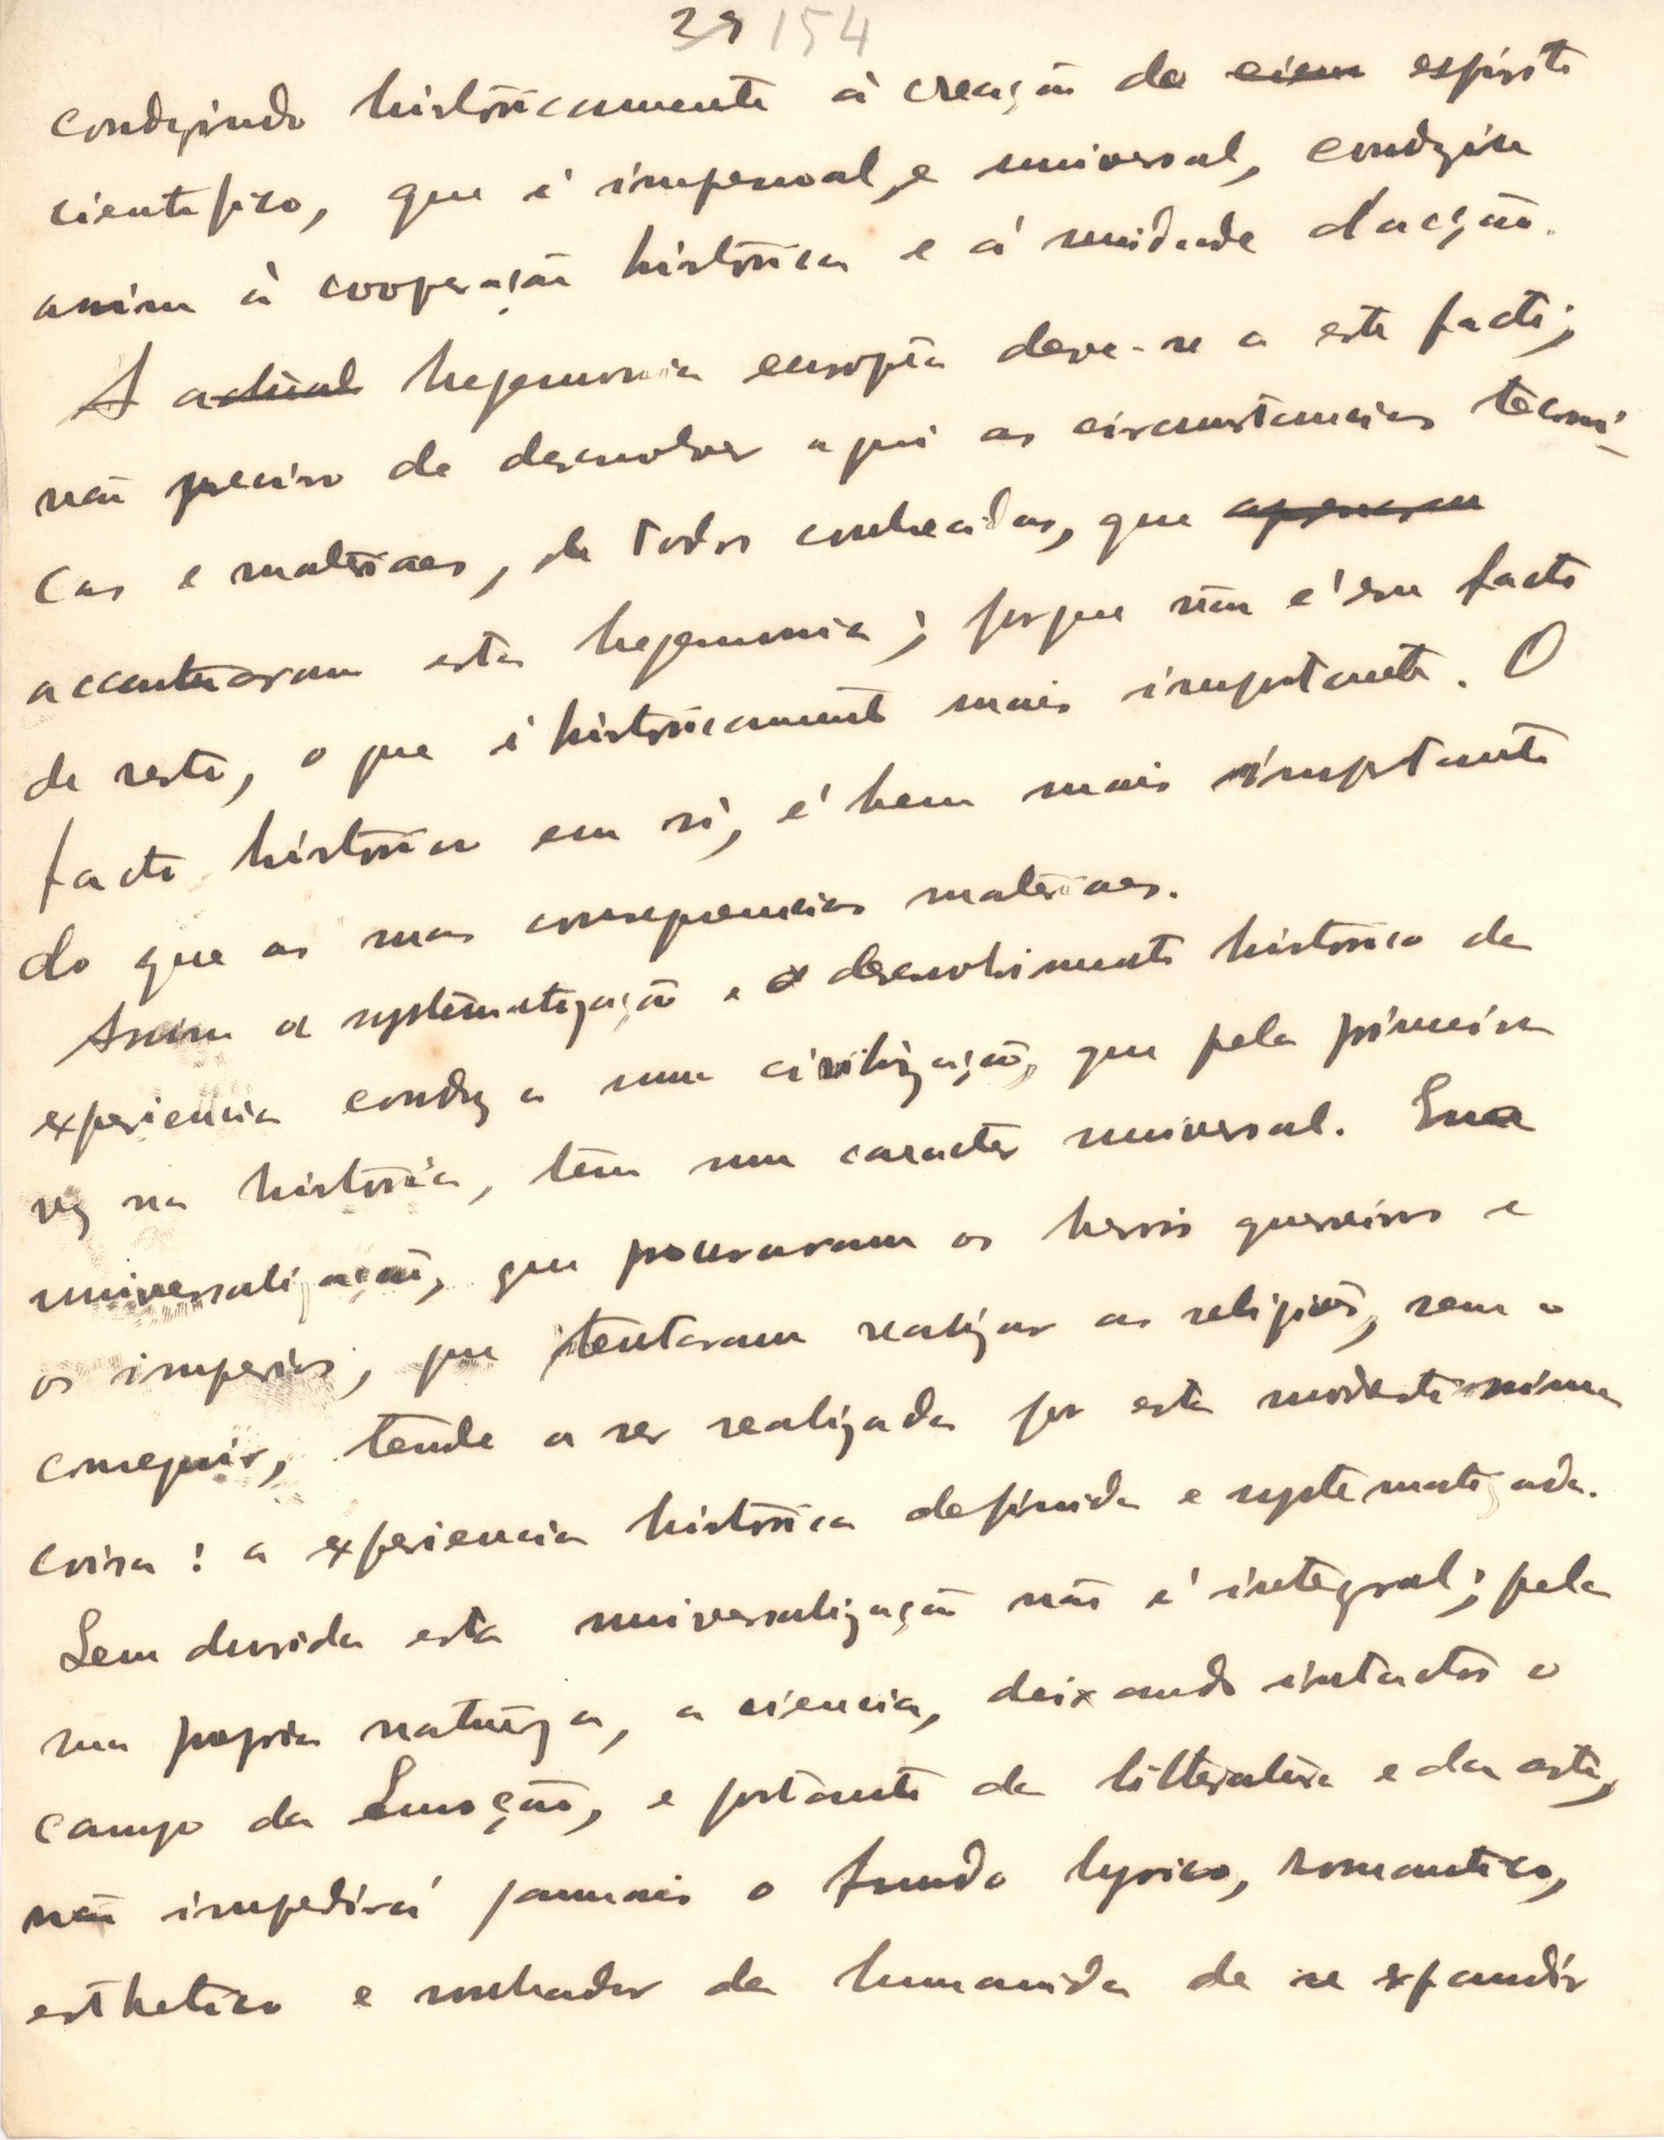 39 154
conduzindo historicamente à creação do ciem espirito
cientifico, que é impessoal, e universal, conduziu
assim à cooperação histórica e á unidade d'acção.
A actual hegemonia europea deve-se a este facto;
não preciso de desenvolver aqui as circunstancias tecni-
cas e materiaes, de todos conhecidas, que
accentuaram esta hegemonia; porque não é esse facto
de resto, o que é historicamente mais importante. O
facto historico em si, é bem mais importante
do que as suas consequencias materiaes.
Assim a systematização e o desenvolvimento historico da
experiencia conduz a uma civilização, que pela primeira
vez na história, tem um caracter universal. Essa
universalização, que procuraram os herois guerreiros e
os imperios, que tentaram realizar as religiões, sem o
conseguir, tende a ser realizada por esta modestissima
coisa: a experiencia histórica definida e systematizada.
Sem duvida esta universalização não é integral; pela
sua propria natureza, a ciencia, deixando intactos o
campo da Emoção, e portanto da litteratura e da arte,
não impedirá jamais o fundo lyrico, romantico,
esthetico e sonhador da humanida de se expandir